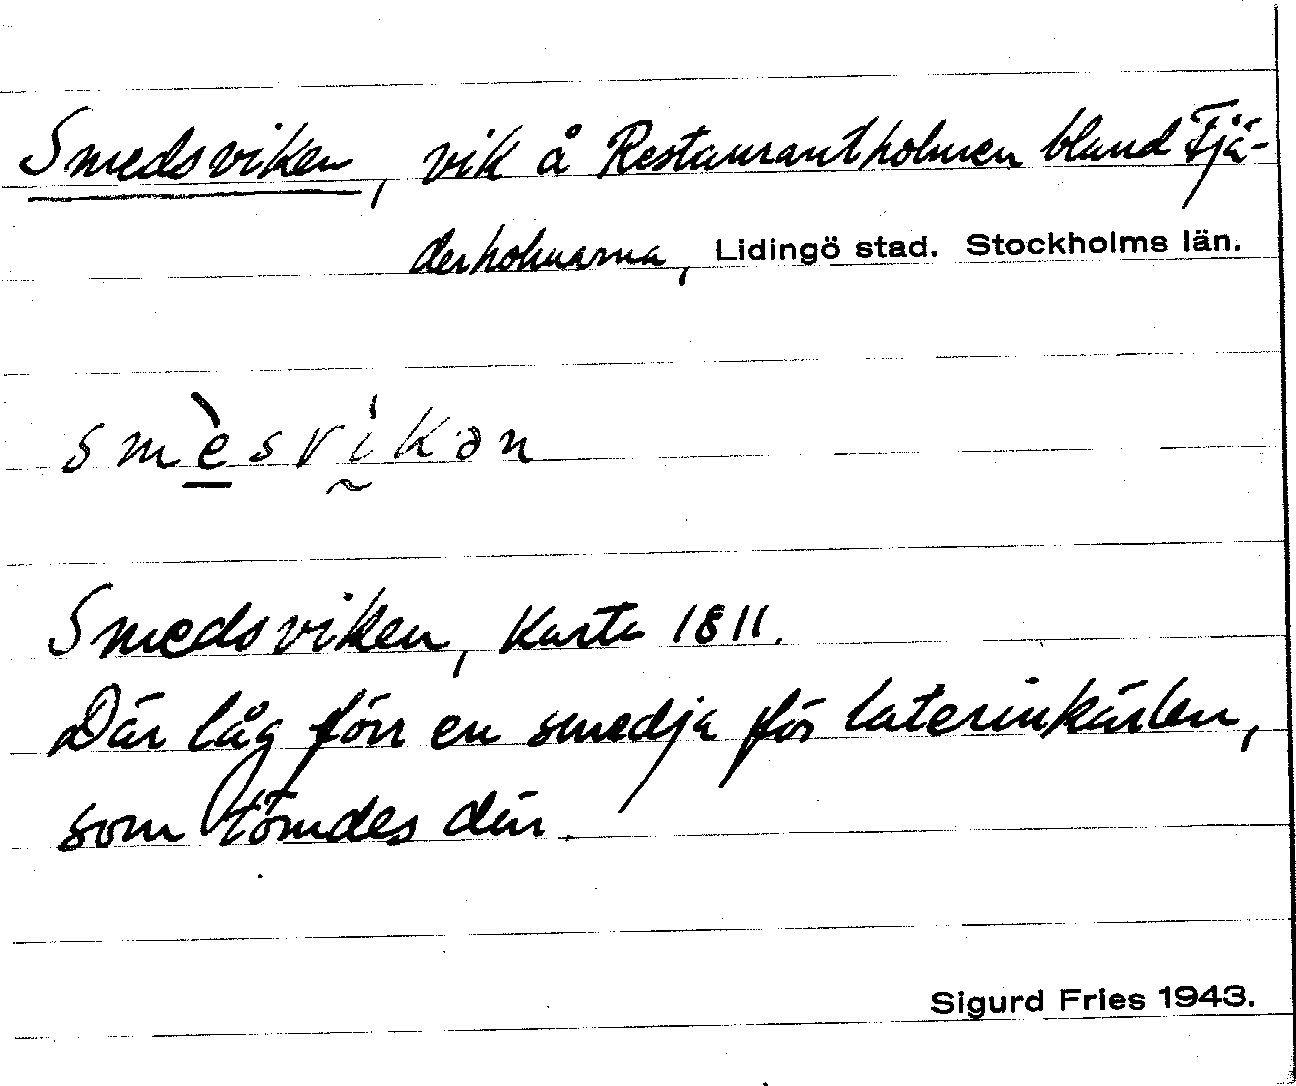 Smedsviken, vik å Restaurantholmen bland Fjä-
derholmarna, Lidingö stad. Stockholms län.
smèsvikən
Smedsviken, Karta 1811.
Där låg förr en smedja för laterinkärlen,
som tömdes där.
Sigurd Fries 1943.